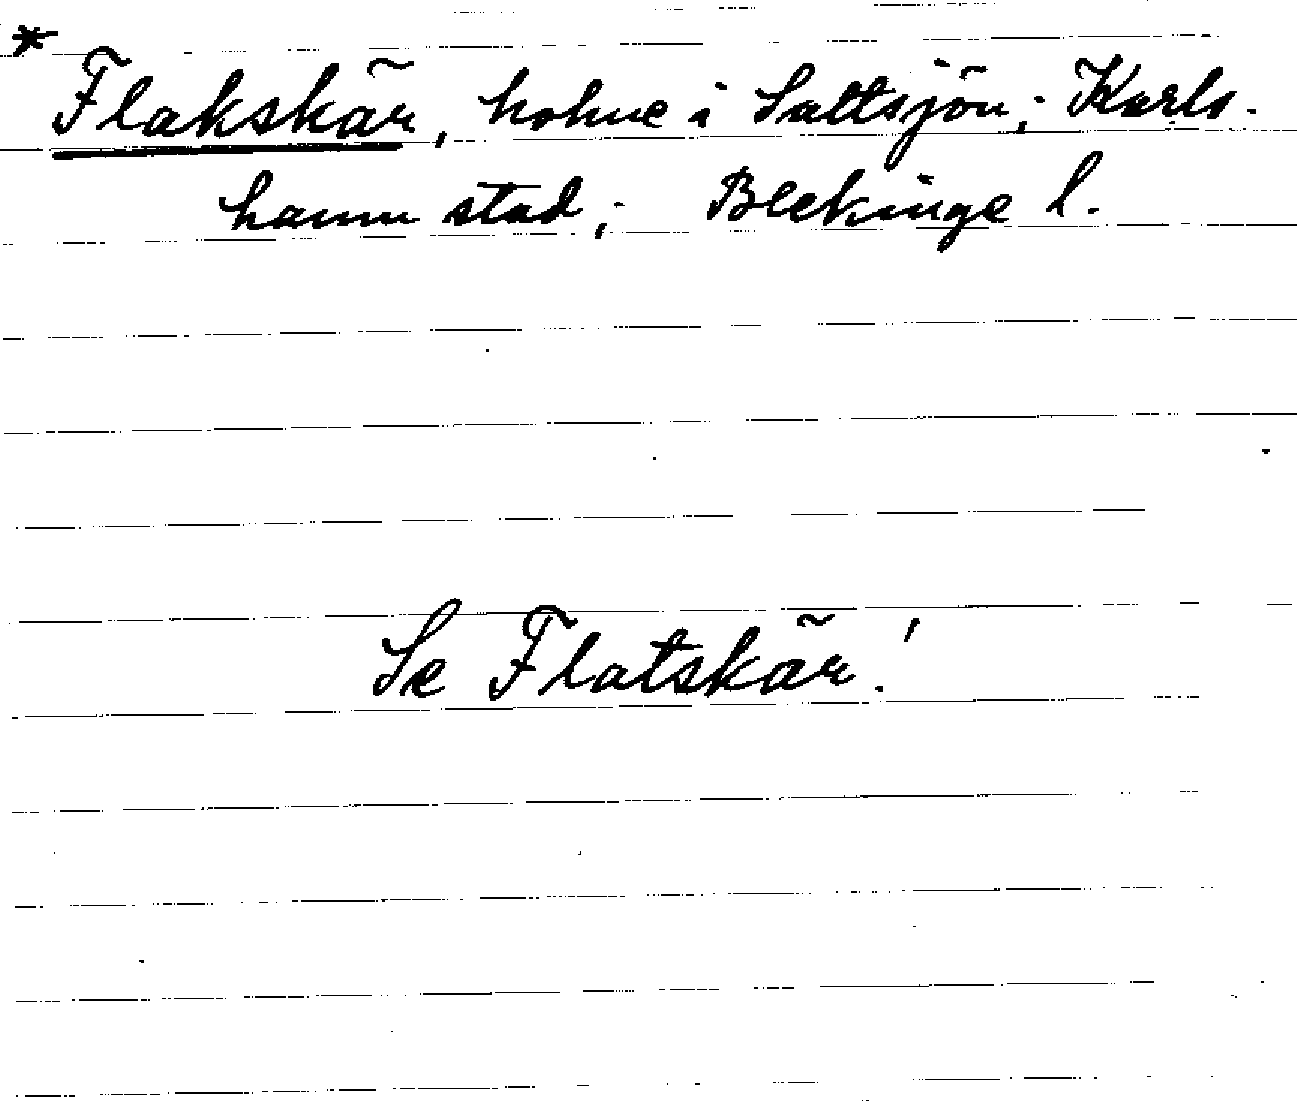 * Flakskär, holme i Saltsjön; Karls-
hamn stad; Blekinge l.
Se Flatskär!